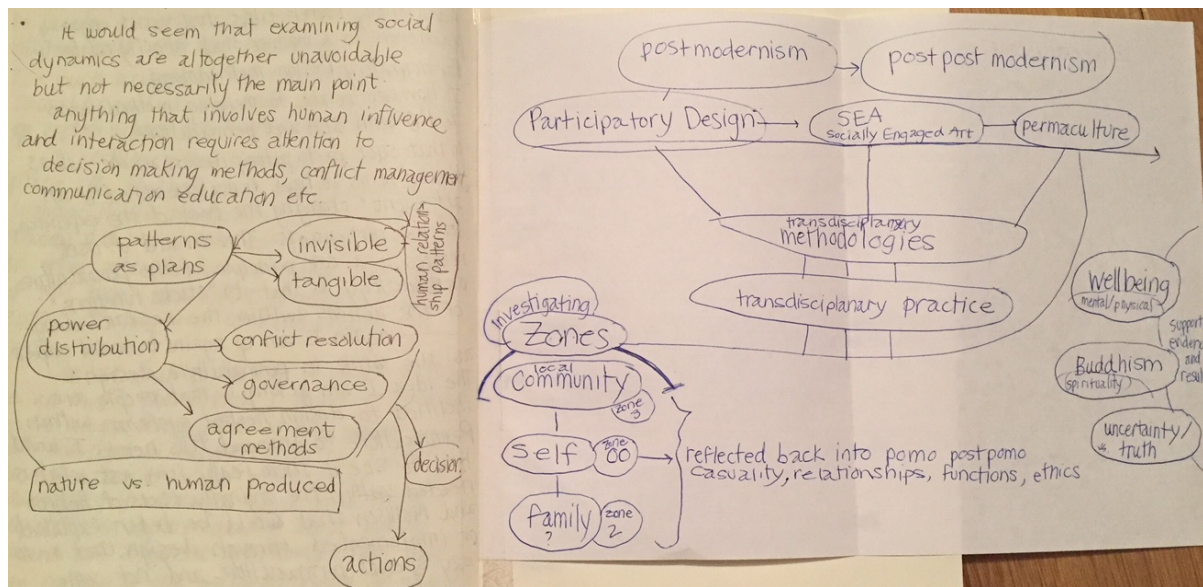 it would seem that examining social
dynamics are altogether unavoidable
but not necessarily the main point.
anything that involves human influence
and interaction requires attention to
decision making methods, conflict management
communication education etc.
patterns
as plans
invisible
tangible
human relation-
ship patterns
power
distribution
conflict resolution
governance
agreement
methods
decision
nature vs. human produced
actions
postmodernism
postpost modernism
Participatory Design
SEA
Socially Engaged Art
permaculture
transdisciplanary
methodologies
transdisciplanary practice
investigating
Zones
local
community
zone
3
self
zone
00
family
?
zone
2
reflected back into pomo postpomo
casuality, relationships, functions, ethics
wellbeing
mental/physical
support
evidenc
and
resul
Buddhism
spirituality
uncertainty/
truth